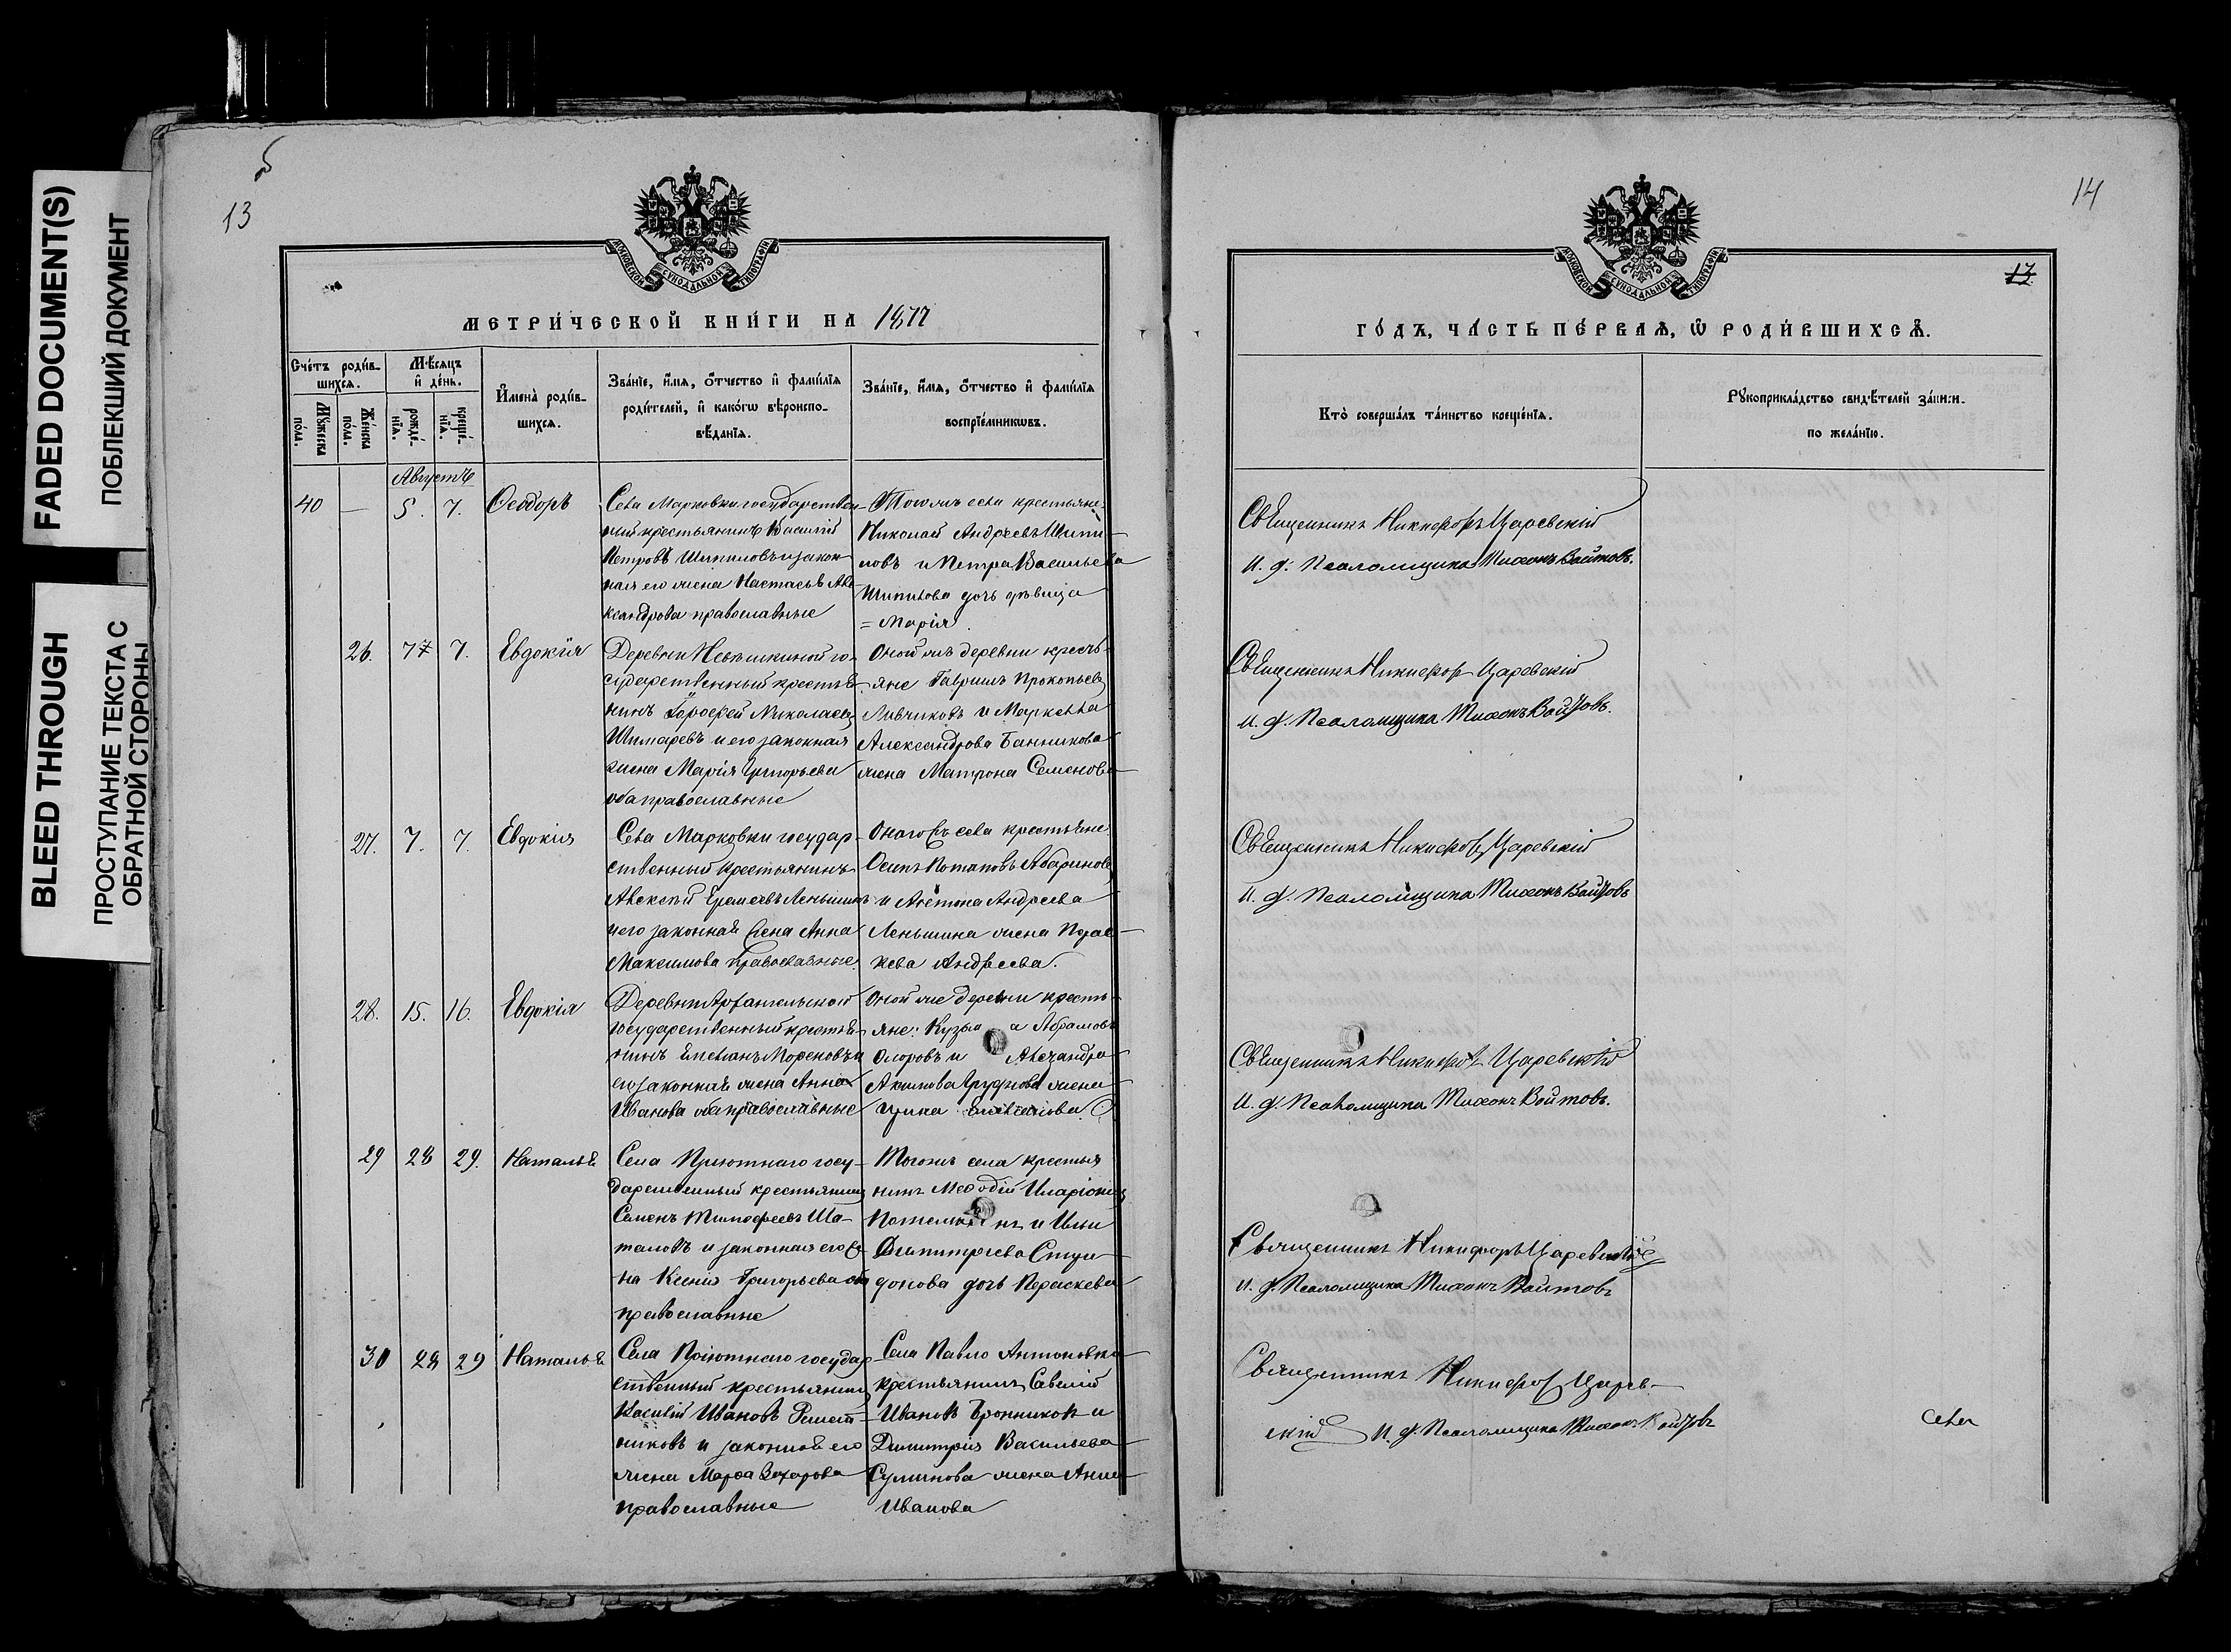 FADED DOCUMENT(S)
ПОБЛЕКШИЙ ДОКУМЕНТ
BLEED THROUGH
ПРОСТУПАНИЕ ТЕКСТА С
ОБРАТНОЙ СТОРОНЫ
13
МОСКОВСКОЙ СѴНОДАЛЬНОЙ ТИПОГРАФІИ
МЕТРИ́ЧЕСКОЙ КНИ́ГИ НА 1877
Сче́тъ роди́в-
шихсѧ.
Мѣ́сѧцъ
и҆ де́нь.
И҆мена̀ роди́в-
шихсѧ.
Зва́нїе, и҆́мѧ, ѻ҆́тчество и҆ фамі́лїѧ
роди́телей, и҆ како́гѡ вѣроиспо-
вѣ́данїѧ.
Зва́нїе, и҆́мѧ, ѻ҆́тчество и҆ фамі́лїѧ
воспрїе́мникѡвъ.
Мꙋ́жеска
пола.
Же́нска
пола.
рожде́-
нїѧ.
креще́-
нїѧ.
Августъ
40 — 5. 7. Ѳеодоръ
Села Марковки государствен-
ный крестьянинъ Василій
Петровъ Шипиловъ и закон-
ная его жена Настасья Але-
ксандрова православные
Того жъ села крестьяне
Николай Андреевъ Шипи-
ловъ и Петра Васильева
Шипилова дочь дѣвица
= Марія.
26. 7 7. Евдокія
Деревни го-
сударственный крестья-
нинъ Дороѳей Николаевъ
и его законная
жена Марія Григорьева
оба православные
Оной жъ деревни кресть-
яне Гавріилъ Прокопьевъ
и
Александрова Банникова
жена Матрона Семенова
27. 7. 7. Евдокія
Села Марковки государ-
ственный крестьянинъ
Алексѣй Леньшинъ
и его законная жена Анна
Максимова православные.
Онаго жъ села крестьяне
Осипъ Потаповъ
и Антона Андреева
Леньшина жена Парас-
кева Андреева.
28. 15. 16. Евдокія
Деревни Архангельской
государственный крестья-
нинъ Емельянъ и
его законная жена Анна
Иванова оба православные
Оной же деревни кресть-
яне: Кузьма Абрамовъ
и Александра
Акимова жена
Ирина
29 28 29. Наталья
Села Пріютнаго госу-
дарственный крестьянинъ
Семенъ Тимофеевъ Ша-
таловъ и законная его же-
на Ксенія Григорьева оба
православные
Тогожъ села крестья
нинъ Меѳодій Иларіоновъ
и Ильи
Димитріева Спи-
донова дочь Параскева
30 28 29 Наталья
Села Пріютнаго государ-
ственный крестьянинъ
Василій Ивановъ Решет-
никовъ и законная его
жена Марѳа Захарова
православные
Села Павло Антоновки
крестьянинъ Савелій
Ивановъ Бронниковъ и
Димитрія Васильева
Сулинова жена Анна
Иванова
14
МОСКОВСКОЙ СѴНОДАЛЬНОЙ ТИПОГРАФІИ
13.
ГО́ДЪ, ЧА́СТЬ ПЕ́РВАѦ, Ѡ҆ РОДИ́ВШИХСѦ.
Кто̀ соверша́лъ та́инство креще́нїѧ.
Рꙋкоприкла́дство свидѣ́телей за́писи.
по жела́нїю.
Священникъ Никифоръ Царевскій
И. д. Псаломщика Тихонъ Войтовъ.
Священникъ Никифоръ Царевскій
И. д. Псаломщика Тихонъ Войтовъ.
Священникъ Никифоръ Царевскій
И. д. Псаломщика Тихонъ Войтовъ
Священникъ Никифоръ Царевскій
И. д. Псаломщика Тихонъ Войтовъ.
Священникъ Никифоръ Царевскій
И. д. Псаломщика Тихонъ Войтовъ
Священникъ Никифоръ Царев-
скій И. д. Псаломщика Тихонъ Войтовъ